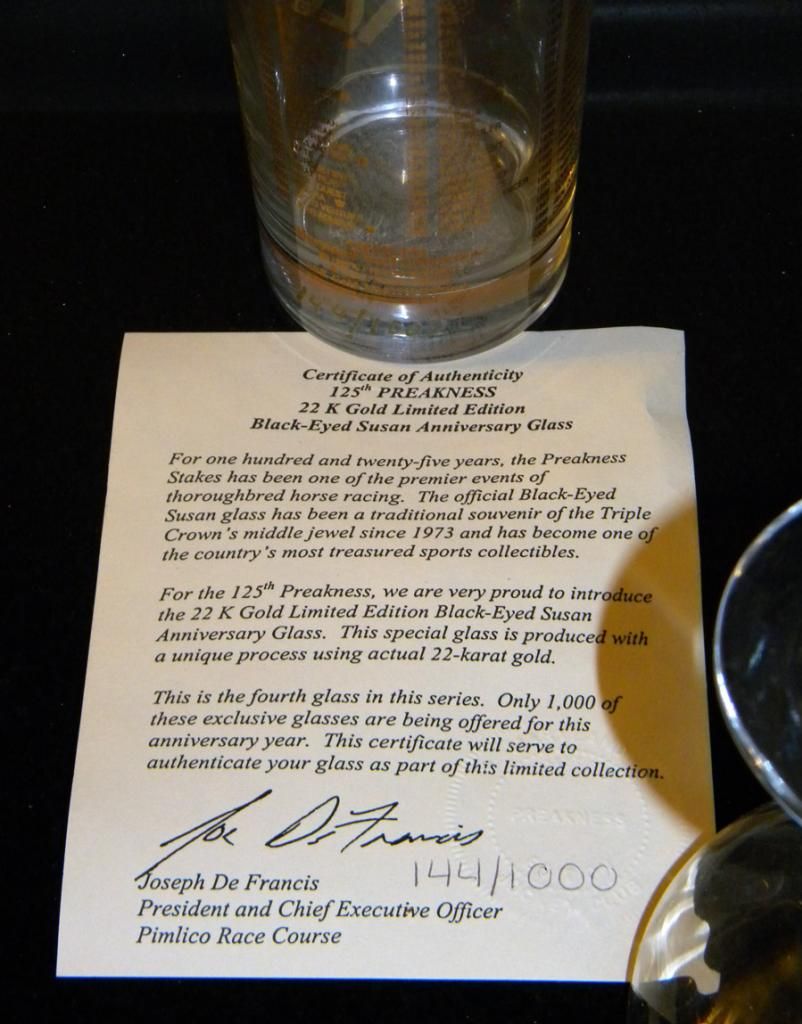 144/1000
Certificate of Authenticity
125th PREAKNESS
22 K Gold Limited Edition
Black-Eyed Susan Anniversary Glass
For one hundred and twenty-five years, the Preakness
Stakes has been one of the premier events of
thoroughbred horse racing. The official Black-Eyed
Susan glass has been a traditional souvenir of the Triple
Crown's middle jewel since 1973 and has become one of
the country's most treasured sports collectibles.
For the 125th Preakness, we are very proud to introduce
the 22 K Gold Limited Edition Black-Eyed Susan
Anniversary Glass. This special glass is produced with
a unique process using actual 22-karat gold.
This is the fourth glass in this series. Only 1,000 of
these exclusive glasses are being offered for this
anniversary year. This certificate will serve to
authenticate your glass as part of this limited collection.
PREAKNESS
Joe De Francis
144/1000
Joseph De Francis
President and Chief Executive Officer
Pimlico Race Course